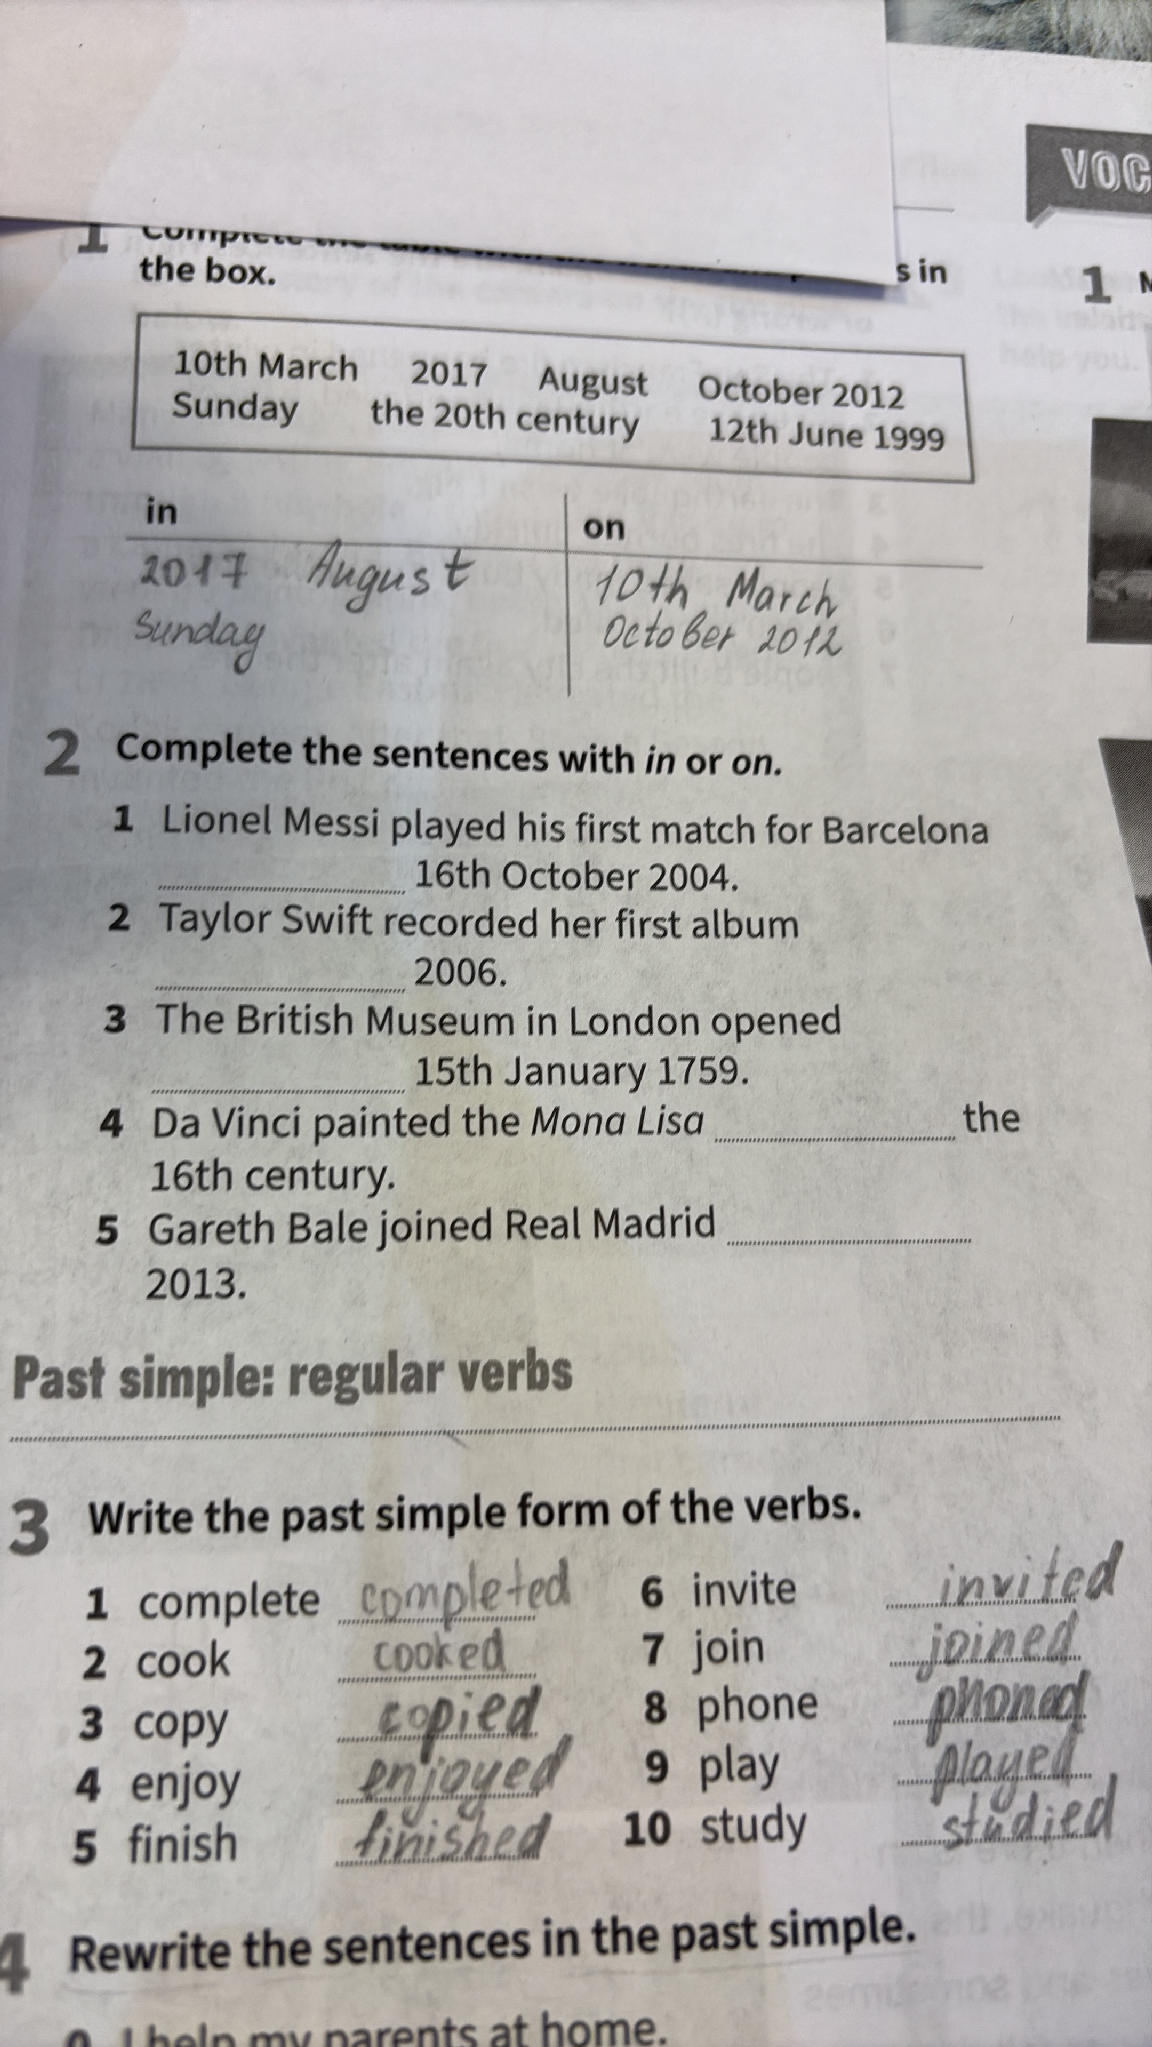 VOC
1 Complete the table with the
the box.
s in
1
10th March 2017 August October 2012
Sunday the 20th century 12th June 1999
in on
2017 August 10th March
Sunday October 2012
2 Complete the sentences with in or on.
1 Lionel Messi played his first match for Barcelona
16th October 2004.
2 Taylor Swift recorded her first album
2006.
3 The British Museum in London opened
15th January 1759.
4 Da Vinci painted the Mona Lisa the
16th century.
5 Gareth Bale joined Real Madrid
2013.
Past simple: regular verbs
3 Write the past simple form of the verbs.
1 complete completed 6 invite invited
2 cook cooked 7 join joined
3 copy copied 8 phone phoned
4 enjoy enjoyed 9 play played
5 finish finished 10 study studied
4 Rewrite the sentences in the past simple.
0 I help my parents at home.